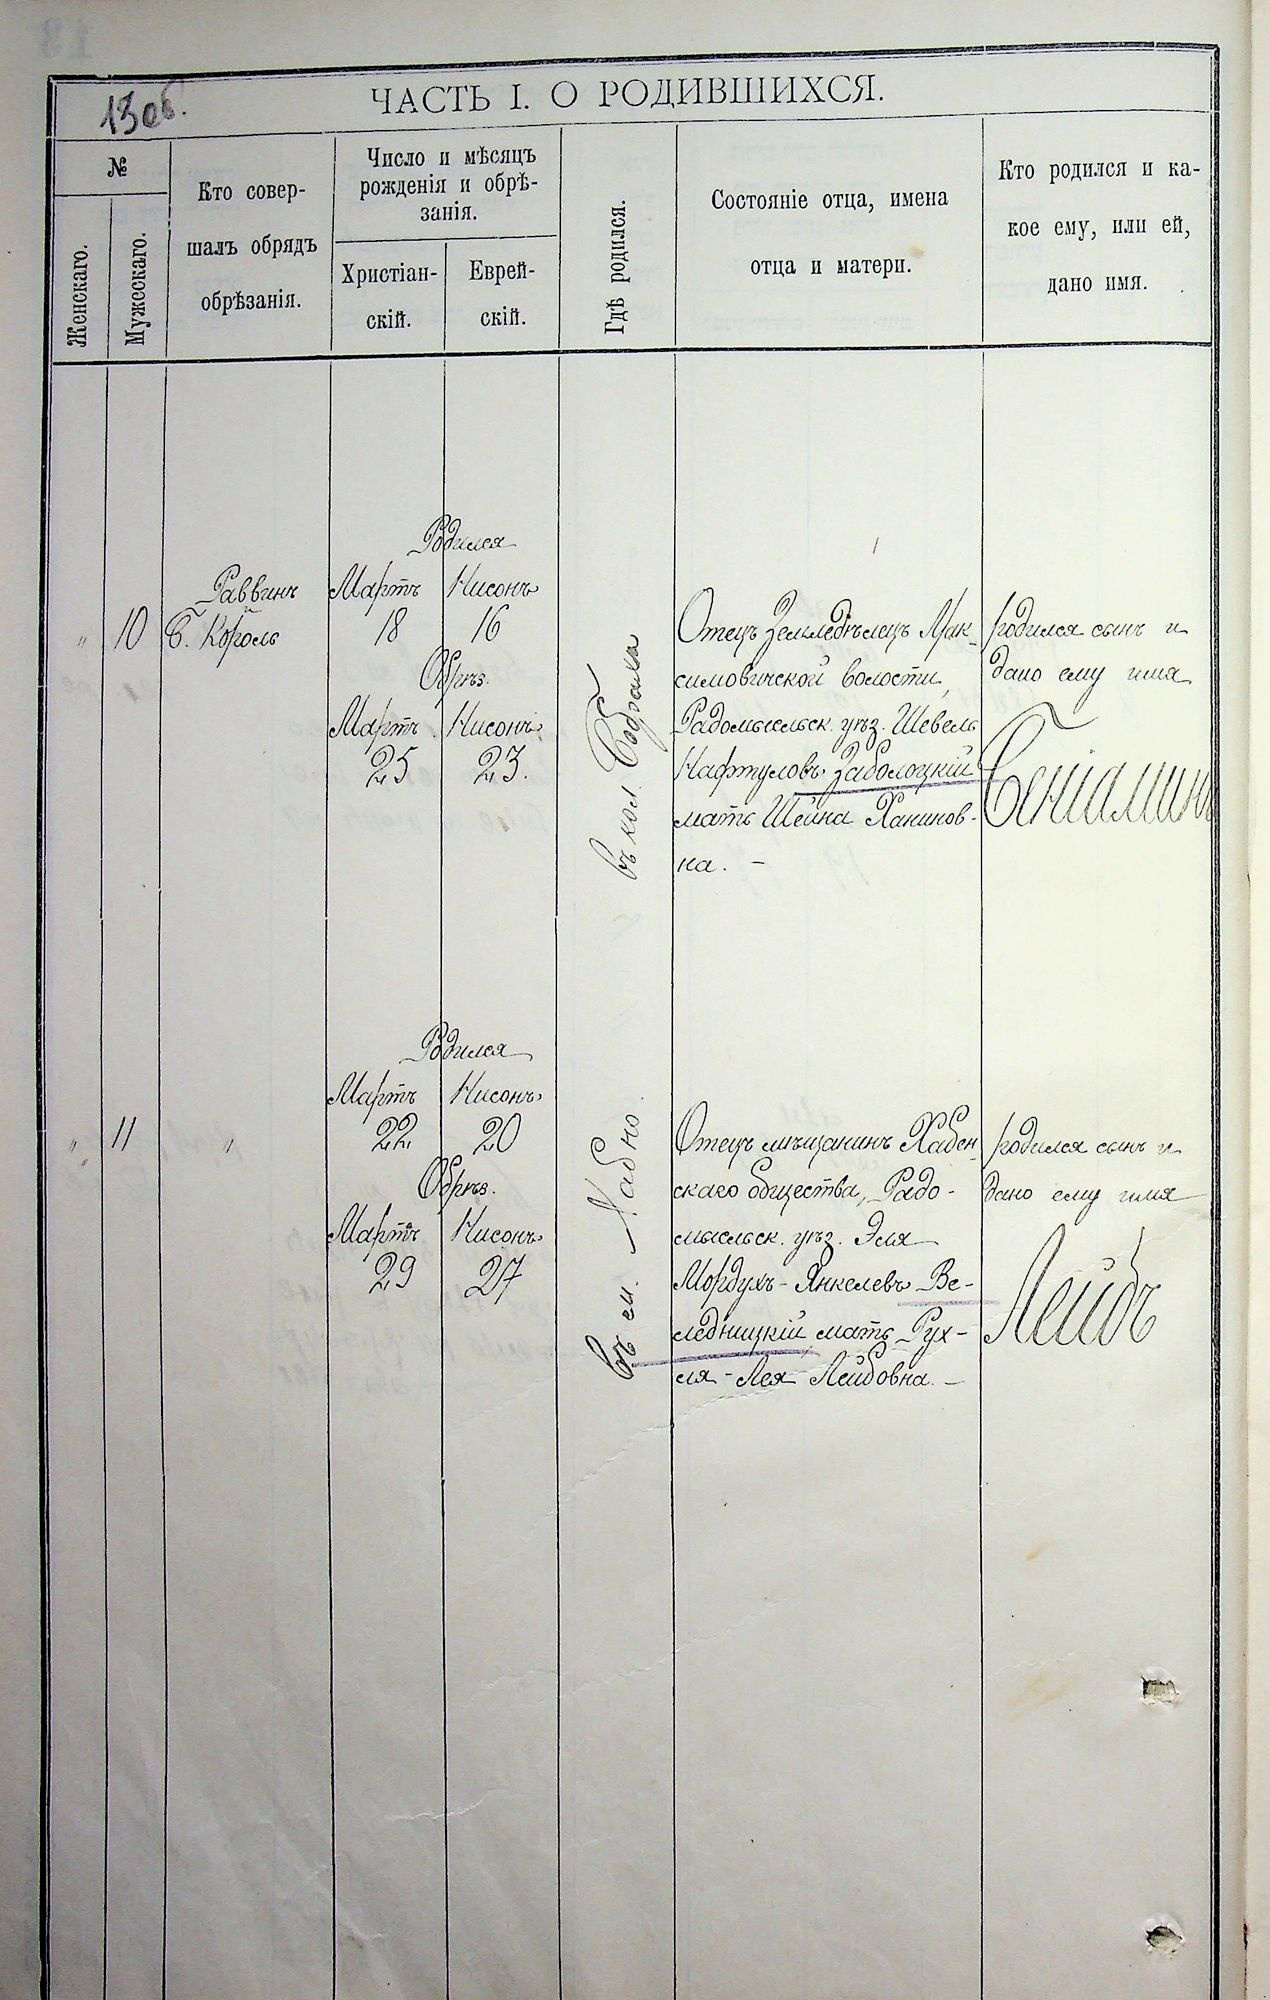 13 об.
ЧАСТЬ I. О РОДИВШИХСЯ.
№
Женскаго.
Мужескаго.
Кто совер-
шалъ обрядъ
обрѣзанія.
Число и мѣсяцъ
рожденія и обрѣ-
занія.
Христіан-
скій.
Еврей-
скій.
Гдѣ родился.
Состояніе отца, имена
отца и матери.
Кто родился и ка-
кое ему, или ей,
дано имя.
"
10
Раввинъ
Б. Король
Родился
Мартъ Нисонъ
18 16
Обрѣз.
Мартъ Нисонъ
25 23.
въ кол.
Отецъ Земледѣлецъ Мак-
симовичской волости,
Радомысльск. уѣз. Шевель
Нафтуловъ Заболоцкій
мать Шейна Ханинов-
на. -
родился сынъ и
дано ему имя
Беніаминъ
"
11
"
Родился
Мартъ Нисонъ
22 20
Обрѣз.
Мартъ Нисонъ
29 27
въ м. Хабно.
Отецъ мѣщанинъ Хабен-
скаго общества, Радо-
мысльск. уѣз. Эля
Мордухъ-Янкелевъ Ве-
ледницкій, мать Рух-
ля-Лея Лейбовна. -
родился сынъ и
дано ему имя
Лейбъ